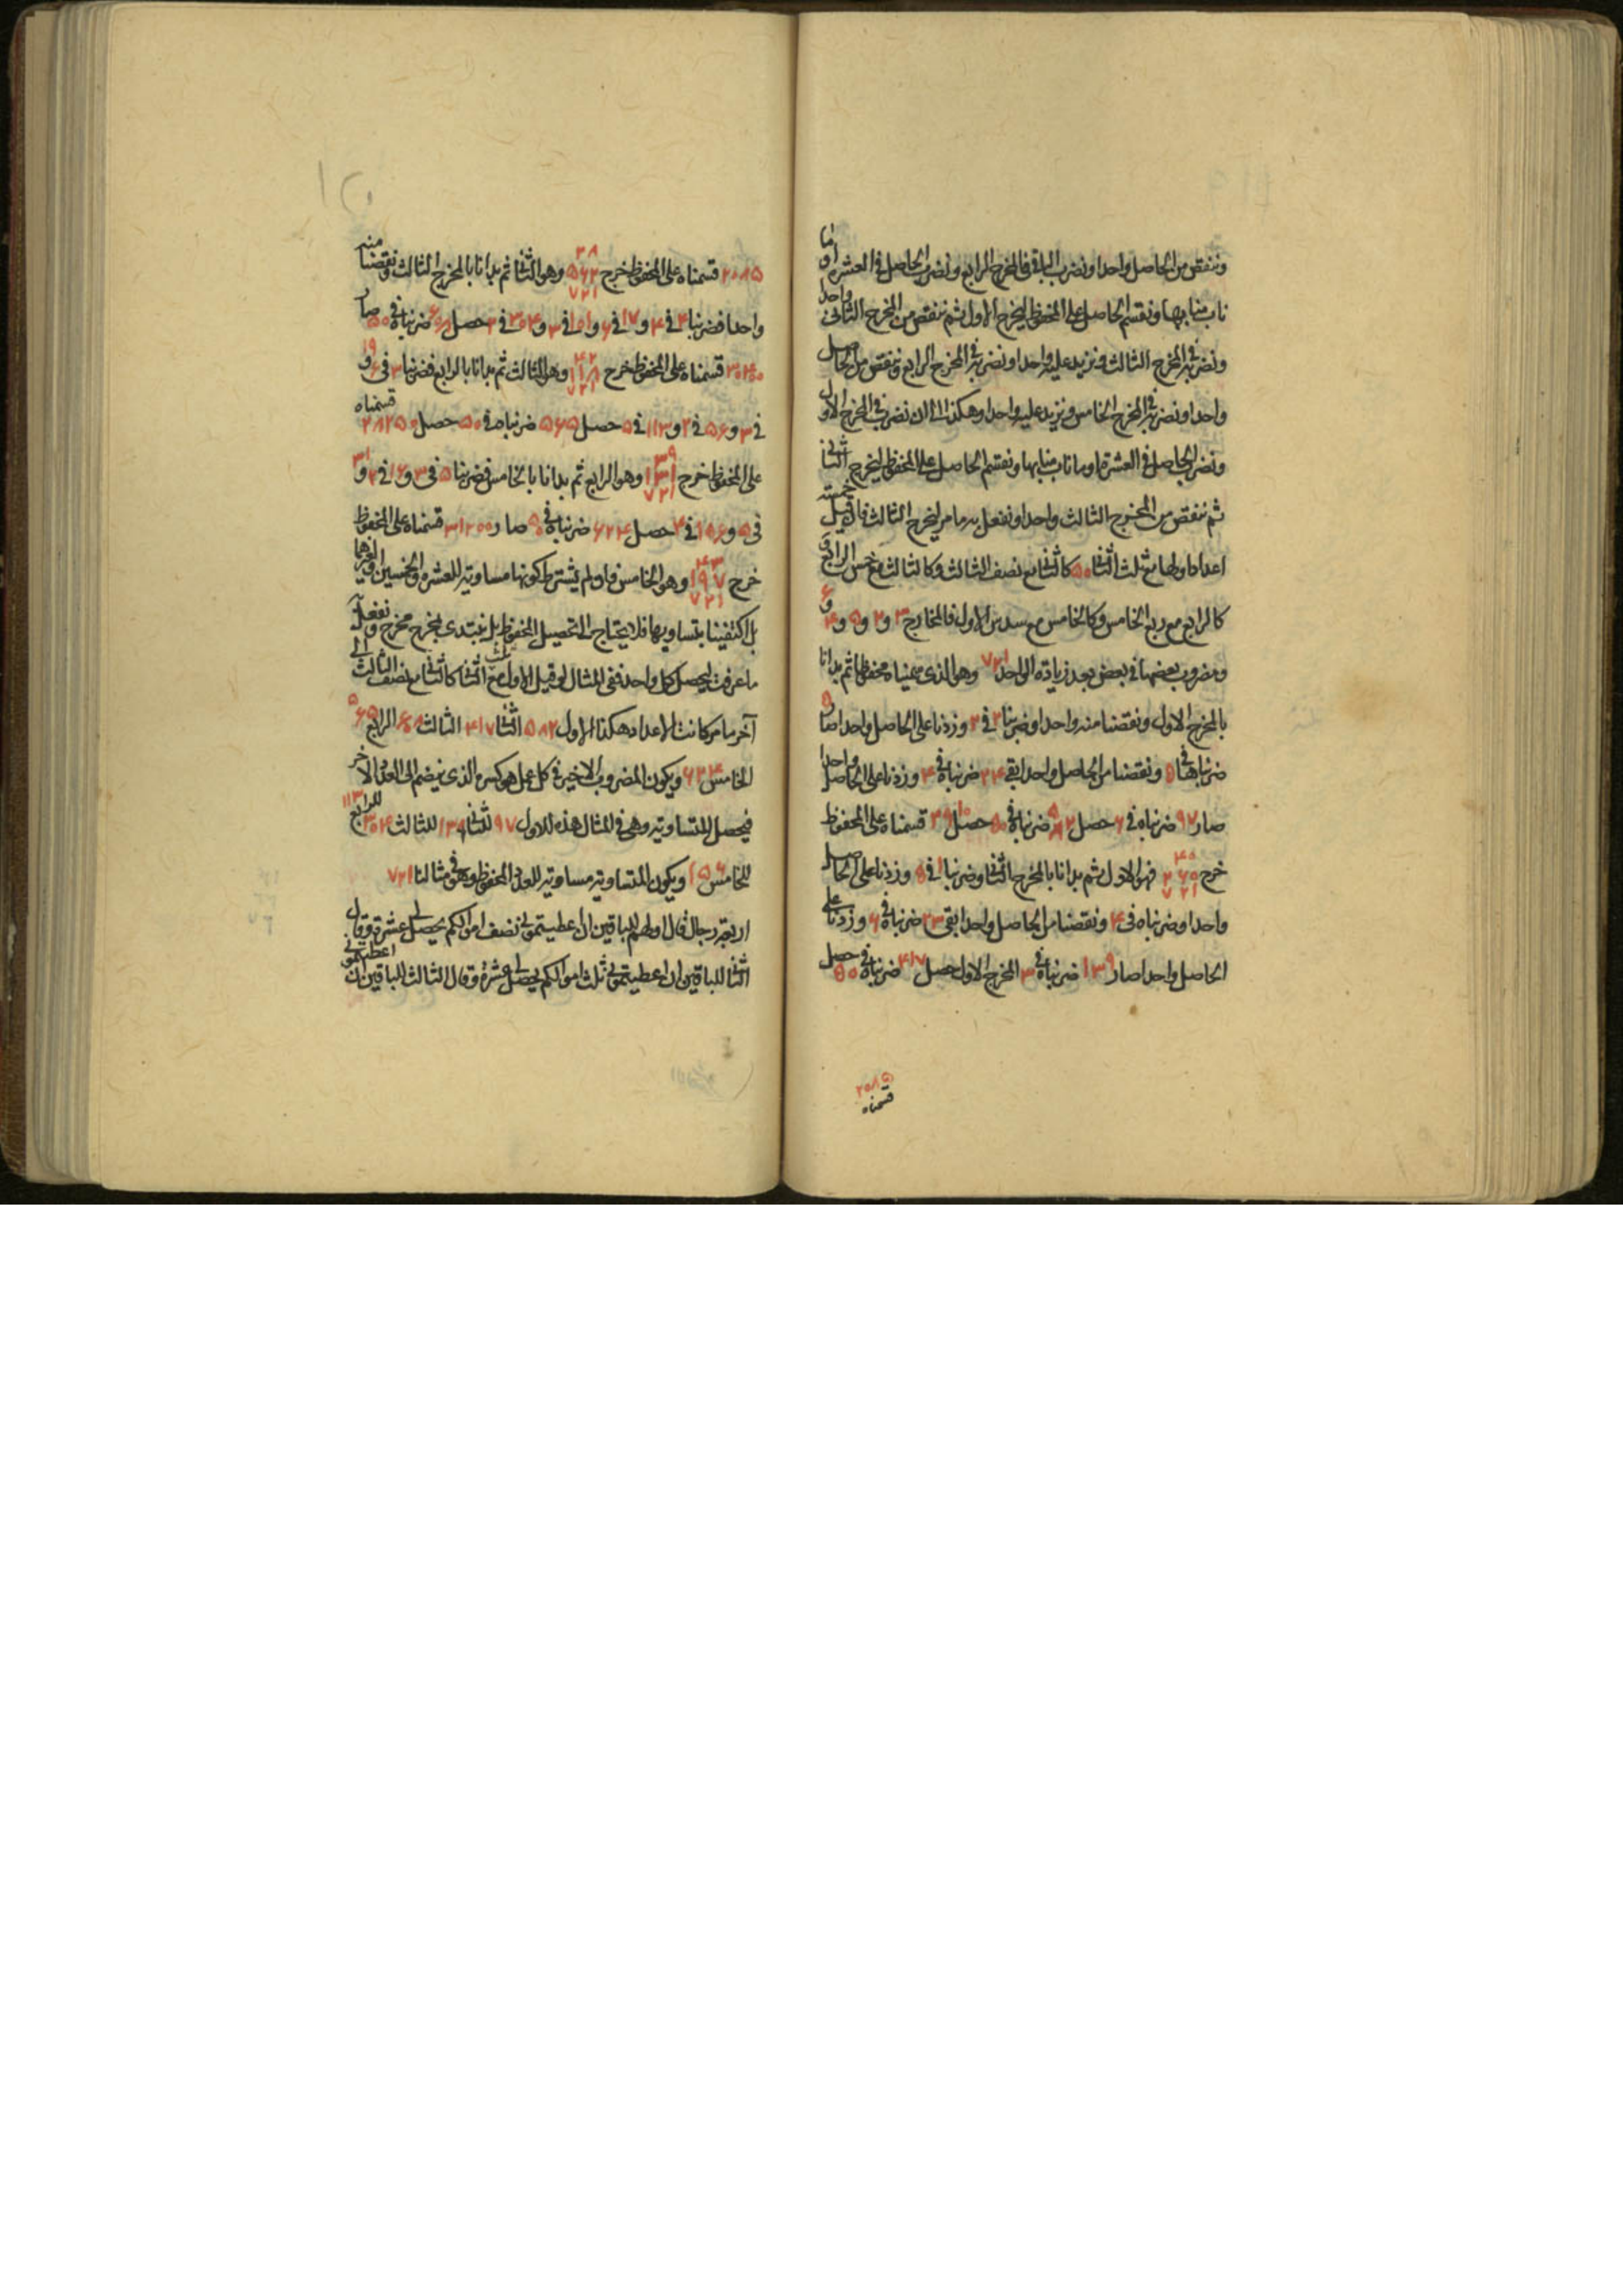 وننقص من الحاصل واحدا ونضرب الباقى فى المخرج الرابع ونضرب الحاصل فى العشرة او ما
ناب منابها ونقسم الحاصل على المحفوظ ليخرج الاول ثم ننقص من المخرج الثانى واحدا
ونضربه فى المخرج الثالث ونزيد عليه واحدا ونضربه فى المخرج الرابع وننقص من الحاصل
واحدا ونضربه فى المخرج الخامس ونزيد عليه واحدا وهكذا الى ان نضرب فى المخرج الاول
ونضرب الحاصل فى العشرة او ما ناب منابها ونقسم الحاصل على المحفوظ ليخرج الثانى
ثم ننقص من المخرج الثالث واحدا ونفعل به ما مر ليخرج الثالث فاذا قيل خمسة
اعداد اولها مع ثلث الثانى ٥٠ كالثانى مع نصف الثالث وكالثالث مع خمس الرابع و
كالرابع مع ربع الخامس وكالخامس مع سدس الاول فالمخارج ٣ و ٢ و ٥ و ٤ و ٦
ومضروب بعضها فى بعض بعد زيادة الواحد ٧٢١ وهو الذى سميناه محفوظا ثم بدانا
بالمخرج الاول ونقصنا منه واحدا وضربنا ٢ فى ٢ وزدنا على الحاصل واحدا صار ٥
ضربناها فى ٥ ونقصنا من الحاصل واحدا بقى ٢٤ ضربناه فى ٤ وزدنا على الحاصل واحدا
صار ٩٧ ضربناه فى ٦ حصل ٥٨٢ ضربناه فى ٥٠ حصل ٢٩١٠٠ قسمناه على المحفوظ
خرج ٤٠ ٢٦٠ ٧٢١ فهو الاول ثم بدانا بالمخرج الثانى وضربنا ١ فى ٥ وزدنا على الحاصل
واحدا وضربناه فى ٤ ونقصنا من الحاصل واحدا بقى ٢٣ ضربناه فى ٦ وزدنا على
الحاصل واحدا صار ١٣٩ ضربناه فى ٣ المخرج الاول حصل ٤١٧ ضربناه فى ٥٠ حصل
٢٠٨٥
قسمناه
٢٠٨٥٠ قسمناه على المحفوظ خرج ٢٨ ٦٦٢ ٧٢١ وهو الثانى ثم بدانا بالمخرج الثالث ونقصنا منه
واحدا فضربنا ٤ فى ٤ و ١٧ فى ٦ و ١٠١ فى ٣ و ٣٠٤ فى ٢ حصل ٦٠٨ ضربناه فى ٥٠ صار
٣٠٤٠٠ قسمناه على المحفوظ خرج ٤٢ ١١٨ ٧٢١ وهو الثالث ثم بدانا بالرابع فضربنا ٣ فى ٦ و ١٩
فى ٣ و ٥٦ فى ٢ و ١١٣ فى ٥ حصل ٥٦٥ ضربناه فى ٥٠ حصل ٢٨٢٥٠ قسمناه
على المحفوظ خرج ٣٩ ١٣١ ٧٢١ وهو الرابع ثم بدانا بالخامس فضربنا ٥ فى ٣ و ١٦ فى ٢ و ٣١
فى ٥ و ١٥٦ فى ٤ حصل ٦٢٤ ضربناه فى ٥٠ صار ٣١٢٠٠ قسمناه على المحفوظ
خرج ٤٣ ١٩٧ ٧٢١ وهو الخامس فلو لم يشترط كونها مساوية للعشرة والخمسين او غيرهما
بل اكتفينا بتساويها فلا يحتاج الى تحصيل المحفوظ بل نبتدى بمخرج مخرج ونفعل
ما عرفت ليحصل كل واحد ففى المثال لو قيل الاول مع ثلث الثانى كالثانى مع نصف الثالث الى
آخر ما مر كانت الاعداد هكذا الاول ٥٨٢ الثانى ٤١٧ الثالث ٦٠٨ الرابع ٥٦٥
الخامس ٦٢٤ ويكون المضروب الاخير فى كل عمل هو كسره الذى ينضم الى العدد الاخر
فيحصل المتساوية وهى فى المثال هذه للاول ٩٧ للثانى ١٣٩ للثالث ٣٠٤ للرابع ١١٣
للخامس ١٥٦ ويكون المتساوية مساوية للعدد المحفوظ وهو فى مثالنا ٧٢١
اربعة رجال قال اولهم للباقين ان اعطيتمونى نصف اموالكم يحصل لى عشرة وقال
الثانى للباقين ان اعطيتمونى ثلث اموالكم يحصل لى عشرة وقال الثالث للباقين ان اعطيتمونى